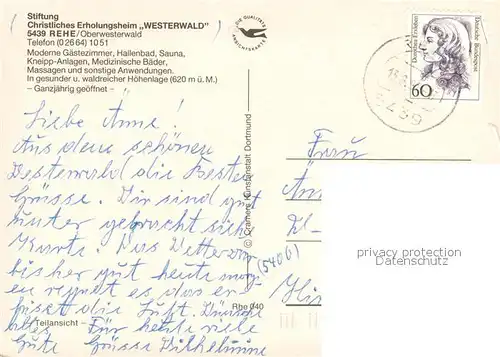 Stiftung
Christliches Erholungsheim „WESTERWALD"
5439 REHE/Oberwesterwald
Telefon (0 26 64) 10 51
Moderne Gästezimmer, Hallenbad, Sauna,
Kneipp-Anlagen, Medizinische Bäder,
Massagen und sonstige Anwendungen.
In gesunder u. waldreicher Höhenlage (620 m ü. M.)
– Ganzjährig geöffnet –
DIE QUALITÄTS
ANSICHTSKARTE
Deutsche Bundespost
60
5439
Liebe Anne!
Aus dem schönen
Westerwald die besten
Grüsse. Wir sind gut
unter gebracht siehe
Karte. Das Wetter war
bis her gut heute morg
en regnet es das er-
friset die Luft. Wünsche
alles
Für heute viele
Gute Grüsse Wilhelmine
Teilansicht
Rhe 040
© Cramers Kunstanstalt Dortmund
Frau
(5406)
privacy protection
Datenschutz